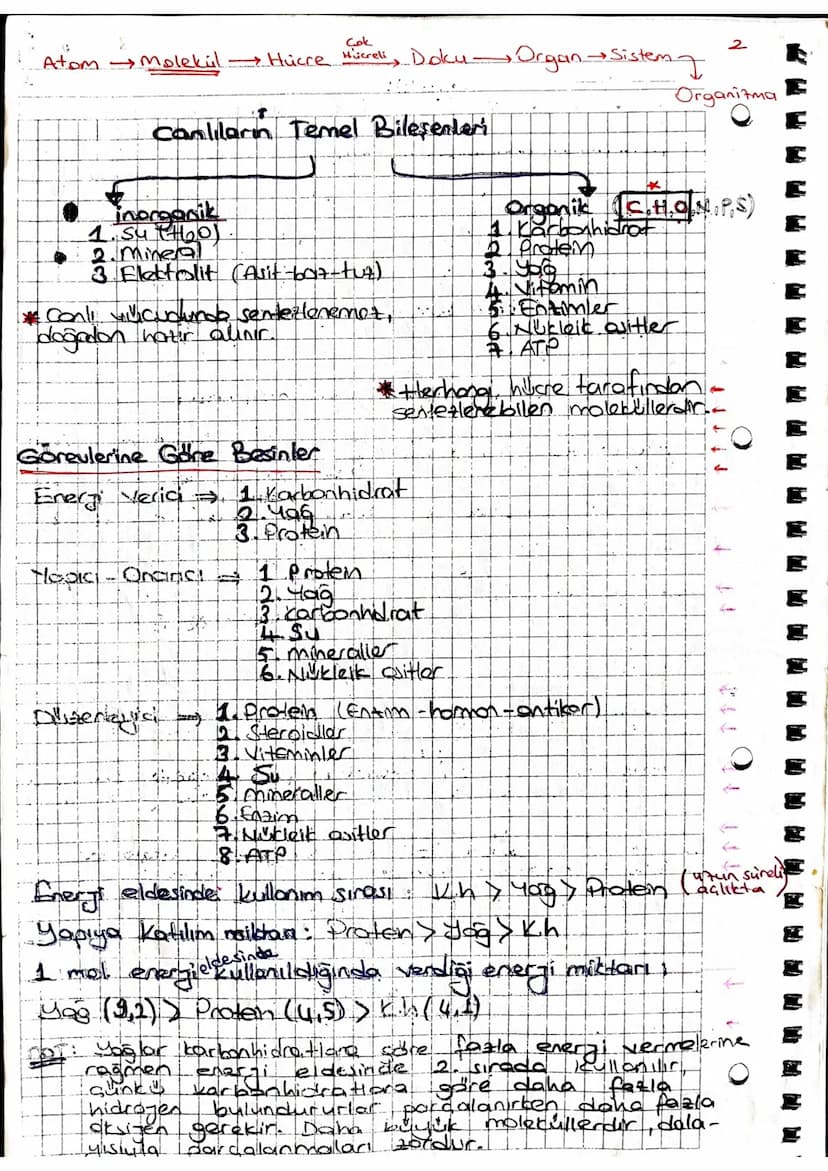 2
Atom → Molekül → Hücre Çok Hücreli → Doku → Organ → Sistem
Organizma
Canlıların Temel Bileşenleri
İnorganik
1. Su (H2O)
2. Mineral
3. Elektrolit (Asit-baz-tuz)
* Canlı vücudunda sentezlenemez,
doğadan hazır alınır.
Organik (C,H,O,N,P,S)
1. Karbonhidrat
2. Protein
3. Yağ
4. Vitamin
5. Enzimler
6. Nükleik asitler
7. ATP
* Herhangi hücre tarafından
sentezlenebilen moleküllerdir.
Görevlerine Göre Besinler
Enerji Verici ⇒ 1. Karbonhidrat
2. Yağ
3. Protein
Yapıcı - Onarıcı ⇒ 1 Protein
2. Yağ
3. Karbonhidrat
4. Su
5. mineraller
6. Nükleik asitler
Düzenleyici ⇒ 1. Protein (Enzim-hormon-antikor)
2. Steroidler
3. Vitaminler
4. Su
5. mineraller
6. Enzim
7. Nükleik asitler
8. ATP
Enerji eldesinde kullanım sırası : Kh > Yağ > Protein (uzun süreli açlıkta)
Yapıya katılım miktarı : Protein > Yağ > Kh
1 mol enerji eldesinde kullanıldığında verdiği enerji miktarı ;
Yağ (9,2) > Protein (4,5) > K.h (4,1)
NOT : Yağlar karbonhidratlara göre fazla enerji vermelerine
rağmen enerji eldesinde 2. sırada kullanılır,
Çünkü karbonhidratlara göre daha fazla
hidrojen bulundururlar, parçalanırken daha fazla
oksijen gerekir. Daha büyük moleküllerdir, dola-
yısıyla parçalanmaları zordur.